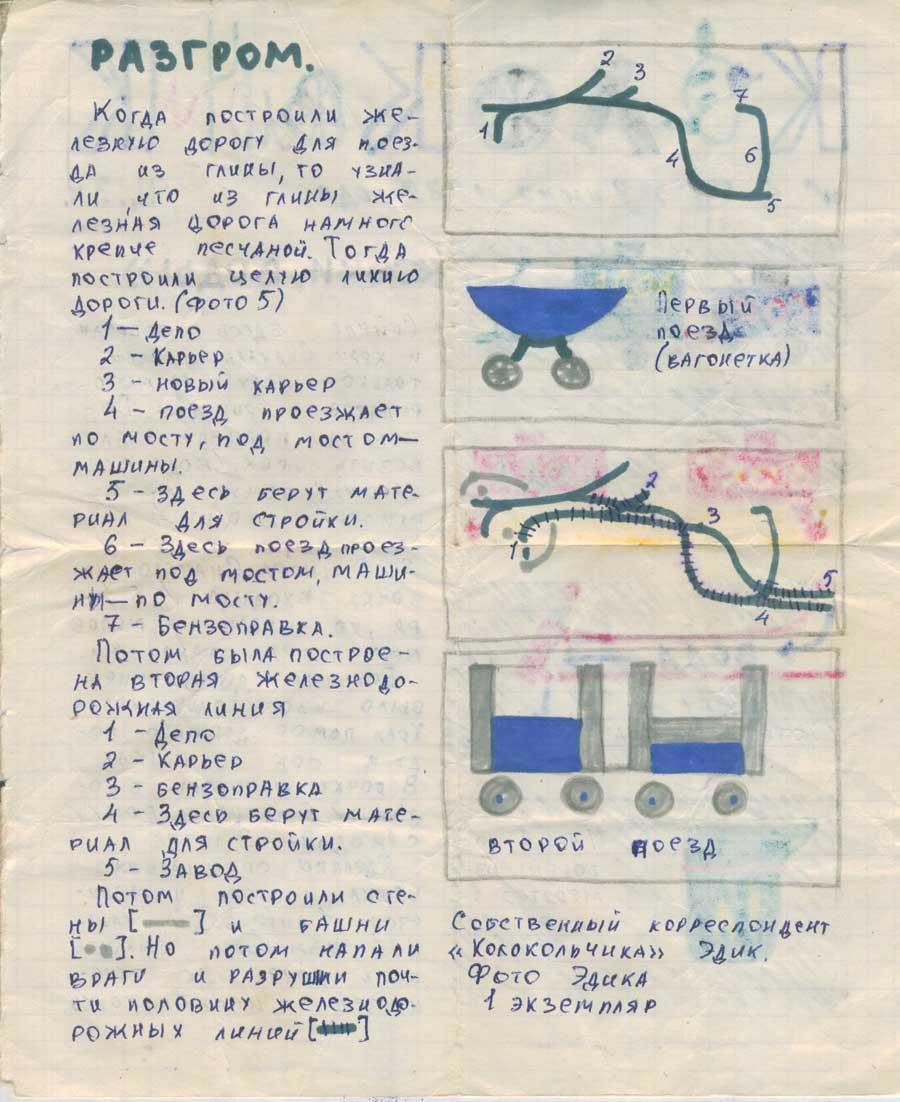 РАЗГРОМ.
Когда построили же-
лезную дорогу для поез-
да из глины, то узна-
ли, что из глины же-
лезная дорога намного
крепче песчаной. Тогда
построили целую линию
дороги. (фото 5)
1 — Депо
2 - Карьер
3 - новый карьер
4 - поезд проезжает
по мосту, под мостом—
машины.
5 - Здесь берут мате-
риал для стройки.
6 - Здесь поезд проез-
жает под мостом, маши-
ны — по мосту.
7 - Бензоправка.
Потом была построе-
на вторая железнодо-
рожная линия
1 - Депо
2 - Карьер
3 - бензоправка
4 - Здесь берут мате-
риал для стройки.
5 - Завод
Потом построили сте-
ны [ ] и башни
[ ]. Но потом напали
враги и разрушили поч-
ти половину железнодо-
рожных линий [ ]
1
2
3
4
5
6
7
Первый
поезд
(вагонетка)
1
2
3
4
5
второй поезд
Собственный корреспондент
«Колокольчика» Эдик.
Фото Эдика
1 экземпляр